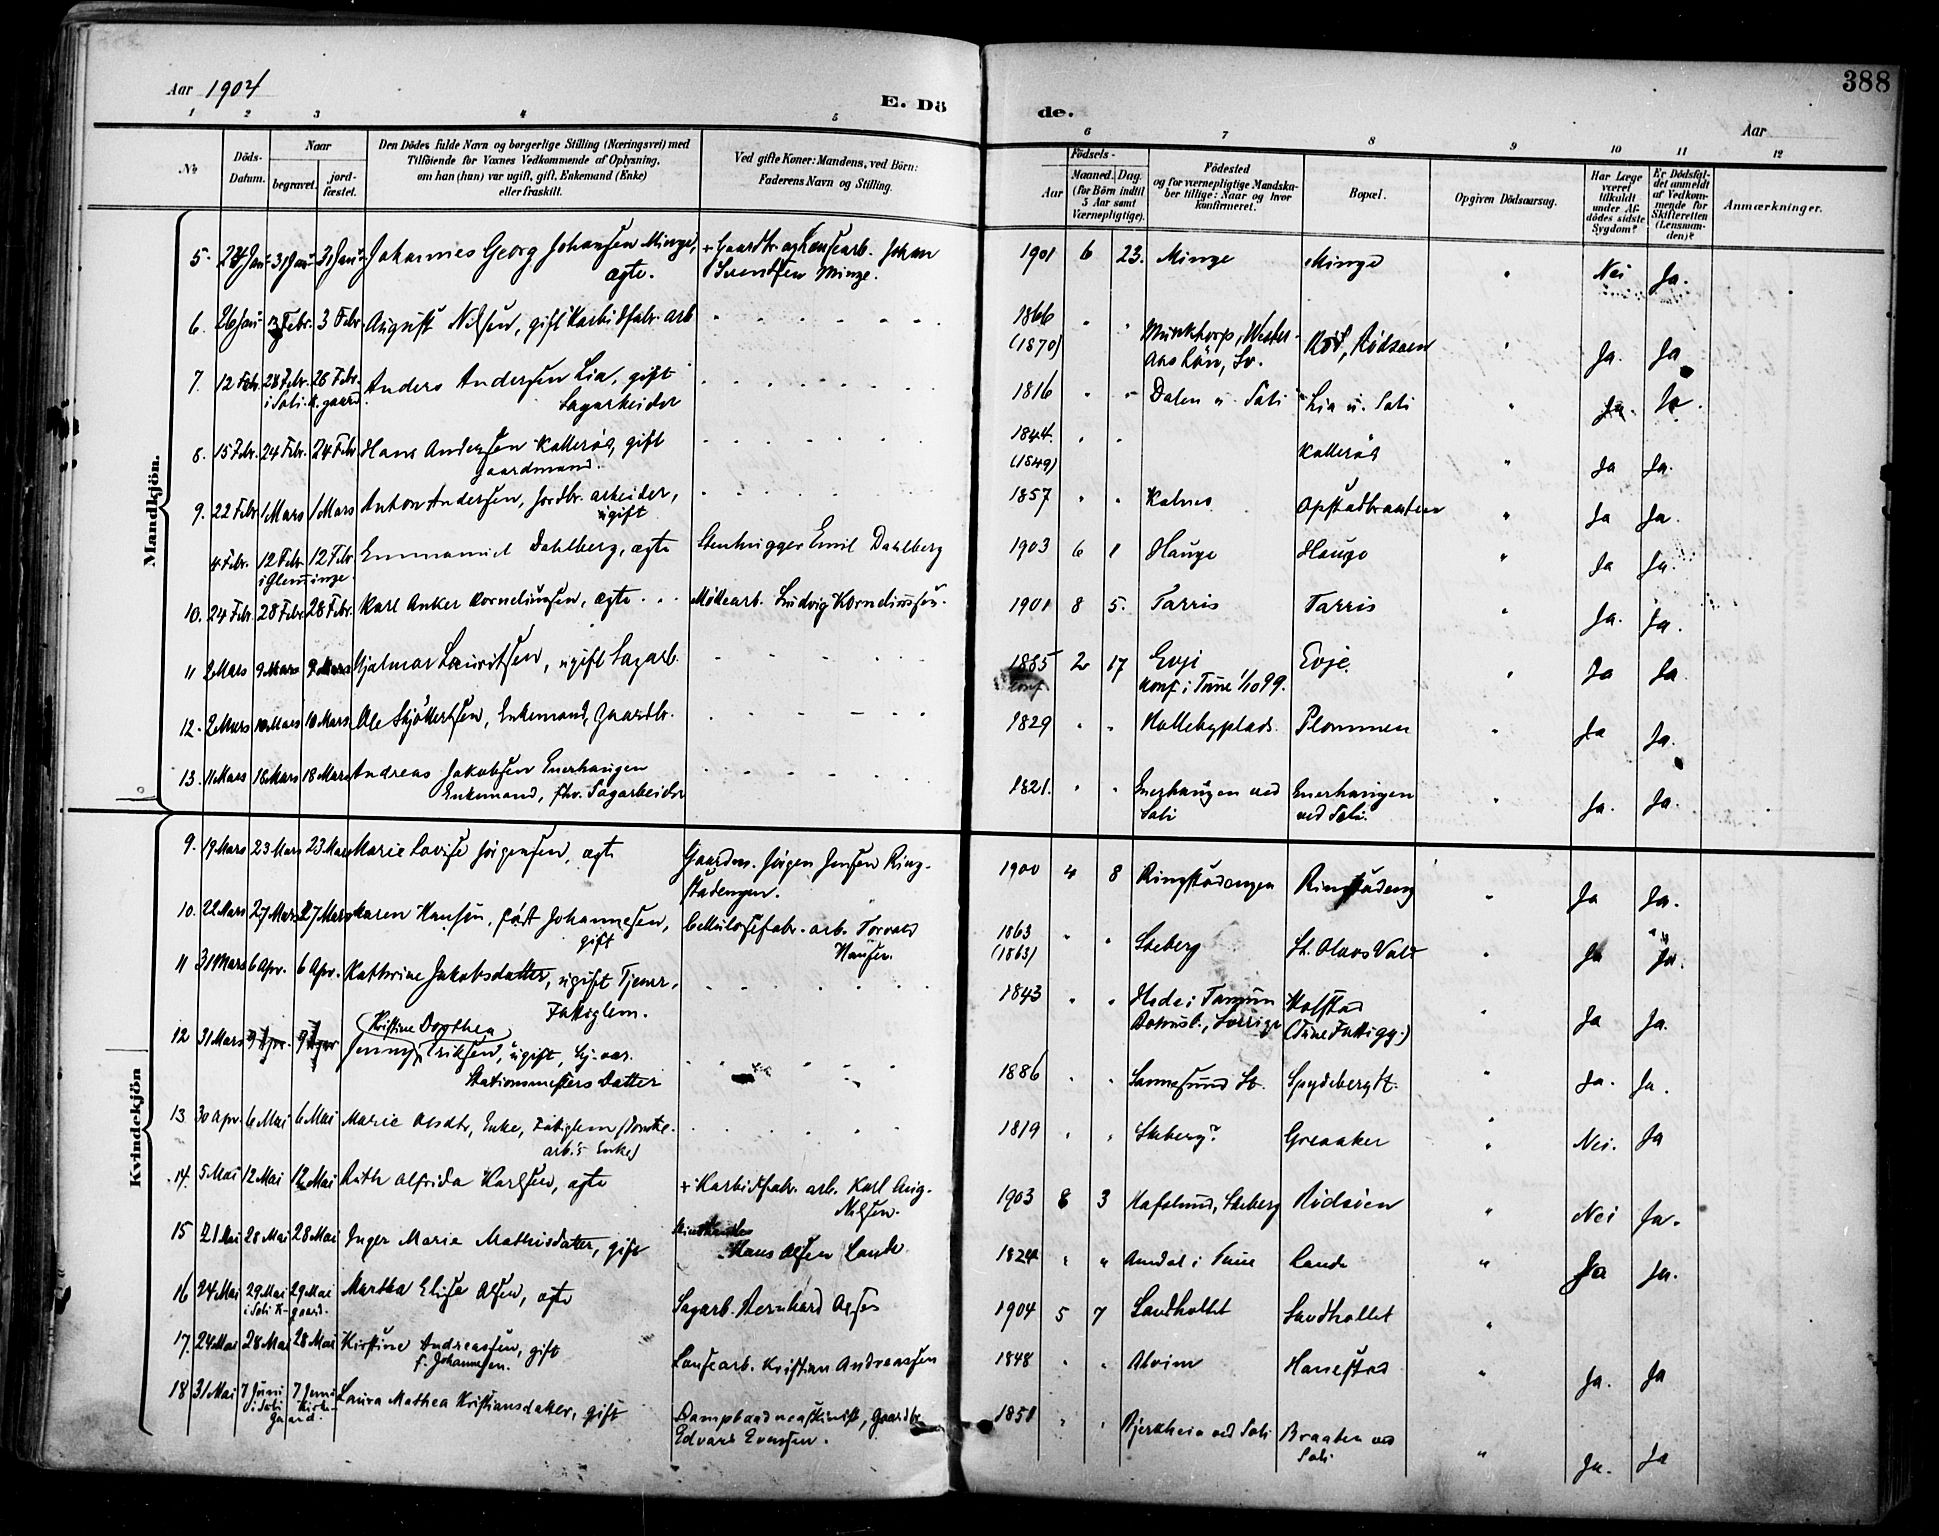 Aar 1904
E. Dö
de.
Aar
388
1 2 3 4 5 6 7 8 9 10 11 12
No
Döds-
Datum.
Naar
begravet.
jord-
fæstet.
Den Dödes fulde Navn og borgerlige Stilling (Næringsvei) med
Tilföiende for Voxnes Vedkommende af Oplysning,
om han (hun) var ugift, gift, Enkemand (Enke)
eller fraskilt.
Ved gifte Koner: Mandens, ved Börn:
Faderens Navn og Stilling.
Födsels-
Aar
Maaned. Dag.
(for Börn indtil
5 Aar samt
Værnepligtige).
Födested
og for værnepligtige Mandska-
ber tillige: Naar og hvor
konfirmeret.
Bopæl.
Opgiven Dödsaarsag.
Har Læge
været
tilkaldt
under Af-
dödes sidste
Sygdom?
Er Dödsfal-
det anmeldt
af Vedkom-
mende for
Skifteretten
(Lensman-
den)?
Anmærkninger.
Mandkjön.
5. 31 Jan 31 Jan Johannes Georg Johansen Minge, + Gaardbr. og Johan 1901 6 23. Minge Minge " Nei Ja.
ægte. Svendsen Minge.
6. 26 Jan 3 Febr. 3 Febr August Nilsen, gift Karbidfabr. arb 1866 Rödsöen Ja. Ja
(1870)
7. 12 Febr. 28 Febr. 28 Febr. Anders Andersen Lia, gift 1816 Dalen v. Soli Lia v. Soli Ja. Ja.
i Soli K. gaard. Sagarbeider
8. 15 Febr. 24 Febr. 24 Febr Hans Andersen Kallerød, gift 1844. Kallerød Ja Ja.
Gaardmand. (1849)
9. 22 Febr 1 Mars 1 Mars Anton Andersen, Jordbr. arbeider, 1857 Kalnes Opstadbraaten Ja Ja.
ugift
4 Febr. 12 Febr 12 Febr Emmanuel Dahlberg, ægte Stenhugger Emil Dahlberg 1903 6 1 Hauge Hauge Ja Ja.
i Glemminge.
10. 24 Febr 28 Febr 28 Febr. Karl Anker Korneliussen, ægte Möllearb. Ludvig Korneliussen. 1901 8 5. Tarris Tarris Ja. Ja.
11 2 Mars 9 Mars 9 Mars Hjalmar Lauritsen, ugift Sagarb. 1885 2 17 Evje Evje. Ja Ja.
konf. konf. i Tune 1/10 99.
12. 2 Mars 10 Mars 10 Mars Ole Skjöllertsen, Enkemand, Gaardbr. 1829 Hallebyplads. Plommen Ja Ja.
13. 11 Mars 18 Mars 18 Mars Andreas Jakobsen Enerhaugen 1821. Enerhaugen ved Enerhaugen Ja. Ja.
Enkemand, fhv. Sagarbeider Soli ved Soli.
Kvindekjön
9. 19 Mars 23 Mars 23 Mars Marie Lovise Jörgensen, ægte Gaardm. Jörgen Jensen Ring- 1900 4 8 Ringstadengen Ringstadeng Ja Ja.
stadengen.
10. 22 Mars 27 Mars 27 Mars Karen Hansen, født Johannesen, Cellulosefabr. arb. Torvald 1863 Skeberg St. Olavs Vold Ja Ja.
gift Hansen. (1863)
11 31 Mars 6 Apr. 6 Apr. Kathrine Jakobsdatter, ugift Tjener, 1843 Hede i Tanum Holstad Ja Ja.
Fattiglem. Bohusl., Sverrige (Tune Fattigg.)
12 31 Mars 9 Apr. 9 Apr Kristine Dorthea
Jenny Eriksen, ugift, hj. vær. 1886 Sannesund St. Spydeberg St. Ja. Ja.
Stationsmesters Datter
13 30 Apr. 6 Mai 6 Mai Marie Olsdtr, Enke, Fattiglem 1819 Skeberg? Greaaker Nei. Ja
arb.s Enke)
14. 5 Mai 12 Mai 12 Mai Ruth Alfrida Karlsen, ægte + Karbidfabr. arb. Karl Aug. 1903 8 3 Hafslund, Skeberg Rödsöen Nei Ja.
Nilsen.
15 21 Mai 28 Mai 28 Mai Inger Marie Mathisdatter, gift Hans Olsen Lande 1824 Aandal i Tune Lande Ja Ja.
16 24 Mai 29 Mai 29 Mai Martha Elise Olsen, ægte Sagarb. Bernhard Olsen 1904 5 7 Sandhollet Sandhollet
i Soli K- gaard.
17. 24 Mai 28 Mai 28 Mai Kirstine Andreassen, gift Lansearb. Kristian Andreassen 1848 Alvim Hanestad Ja. Ja
f. Johannesen.
18 31 Mai 7 Juni 7 Juni Laura Mathea Kristiansdatter, gift Dampbaadmaskinist, Gaardbr 1851 Bjerkheia ved Soli Braaten ved Ja. Ja
i Soli Kirke- Edvard Evensen. Soli
gaard.